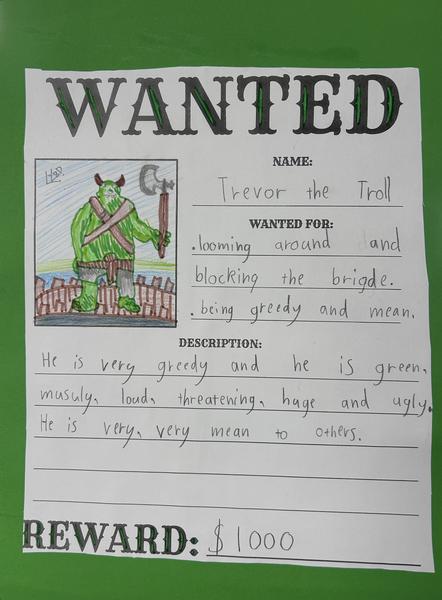 WANTED
NAME:
Trevor the Troll
WANTED FOR:
.looming around and
blocking the brigde.
.being greedy and mean.
DESCRIPTION:
He is very greedy and he is green,
musuly, loud, threatening, huge and ugly.
He is very, very mean to others.
REWARD: $1000